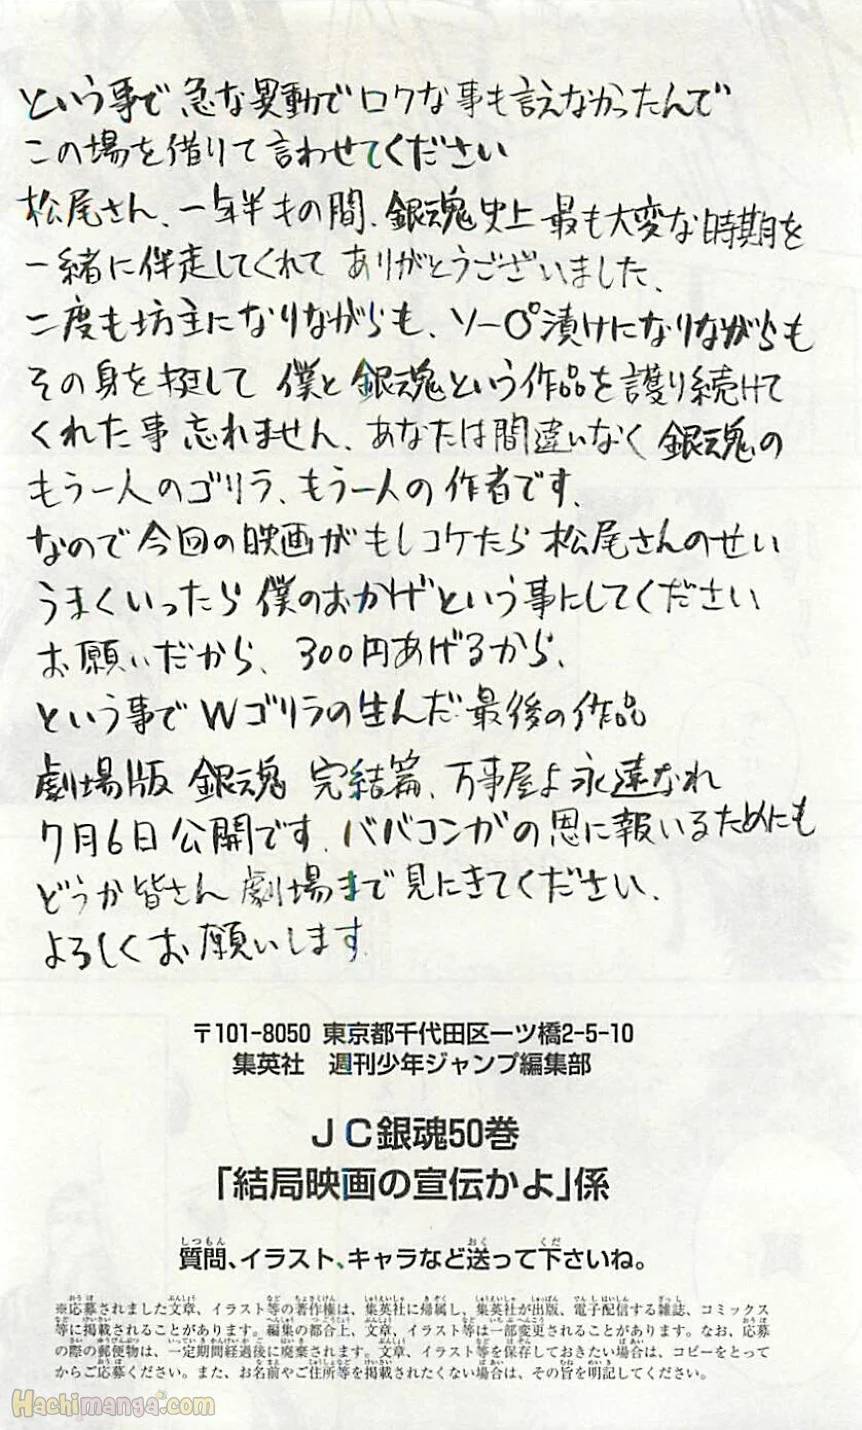 という事で急な異動でロクな事も言えなかったんで
この場を借りて言わせてください
松尾さん、一年半もの間、銀魂史上最も大変な時期を
一緒に伴走してくれてありがとうございました、
二度も坊主になりながらも、ソー〇漬けになりながらも
その身を挺して僕と銀魂という作品を護り続けて
くれた事忘れません、あなたは間違いなく銀魂の
もう一人のゴリラ、もう一人の作者です、
なので今回の映画がもしコケたら松尾さんのせい
うまくいったら僕のおかげという事にしてください
お願いだから、300円あげるから、
という事でWゴリラの生んだ最後の作品
劇場版 銀魂 完結篇、万事屋よ永遠なれ
7月6日公開です、ババコンガの恩に報いるためにも
どうか皆さん劇場まで見にきてください、
よろしくお願いします
〒101-8050 東京都千代田区一ツ橋2-5-10
集英社 週刊少年ジャンプ編集部
JC銀魂50巻
「結局映画の宣伝かよ」係
質問、イラスト、キャラなど送って下さいね。
※応募されました文章、イラスト等の著作権は、集英社に帰属し、集英社が出版、電子配信する雑誌、コミックス
等に掲載されることがあります。編集の都合上、文章、イラスト等は一部変更されることがあります。なお、応募
の際の郵便物は、一定期間経過後に廃棄されます。文章、イラスト等を保存しておきたい場合は、コピーをとって
からご応募ください。また、お名前やご住所等を掲載されたくない場合は、その旨を明記してください。
Hachimanga.com